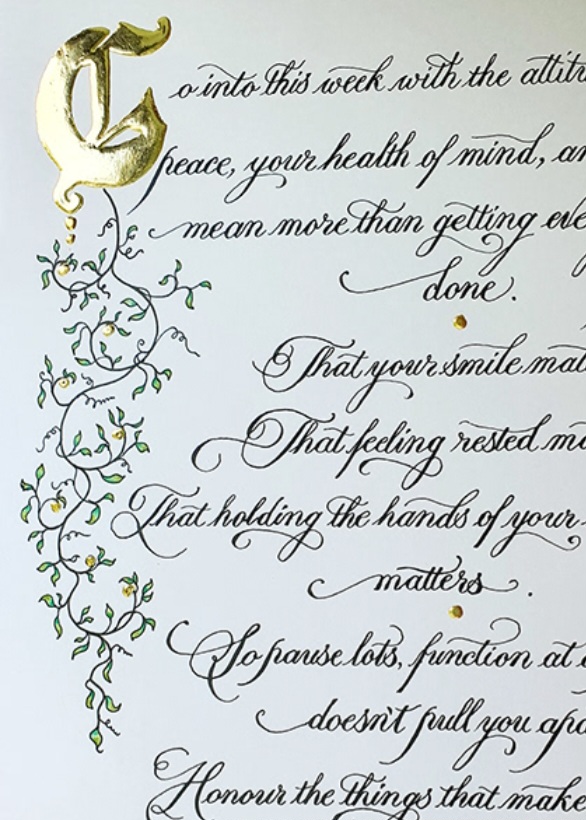 Go into this week with the
peace, your health of mind,
mean more than getting
done.
That your smile
That feeling rested
That holding the hands of your
matters.
So pause lots, function at
doesn't pull you
Honour the things that make